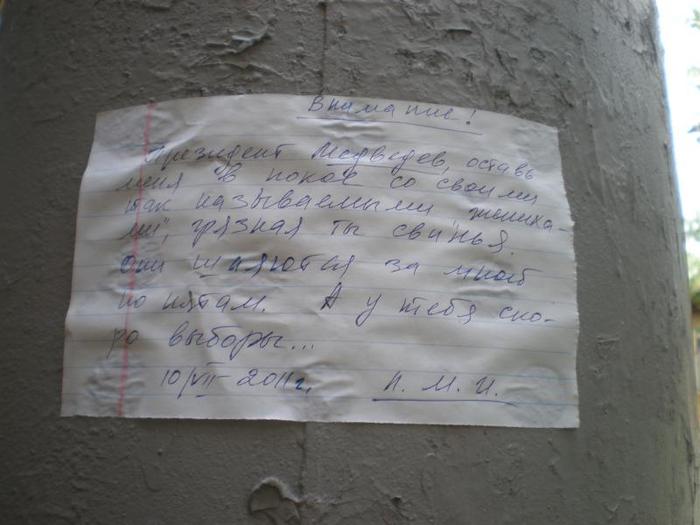 Внимание!
Президент Медведев, оставь
меня в покое со своими
так называемыми „жениха-
ми", грязная ты свинья.
Они шляются за мной
по пятам. А у тебя ско-
ро выборы...
10/VII-2011г. П. М. И.